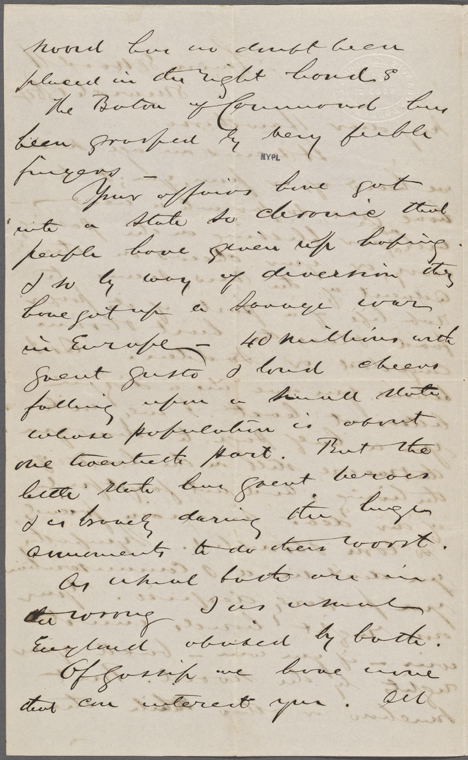 have no doubt been
placed in the right hands &
the Baton of Command has
been grasped by very feeble
fingers —
NYPL
Your affairs have got
into a state so chronic that
people have given up hoping.
& so by way of diversion they
have got up a savage war
in Europe — 40 millions with
great gusto & loud cheers
falling upon a small state
whose population is about
one twentieth part. But the
little state has great heroes
& is bravely daring the huge
to do their worst.
As usual both are in
the wrong & as usual
England abused by both.
Of gossip we have none
that can interest you.